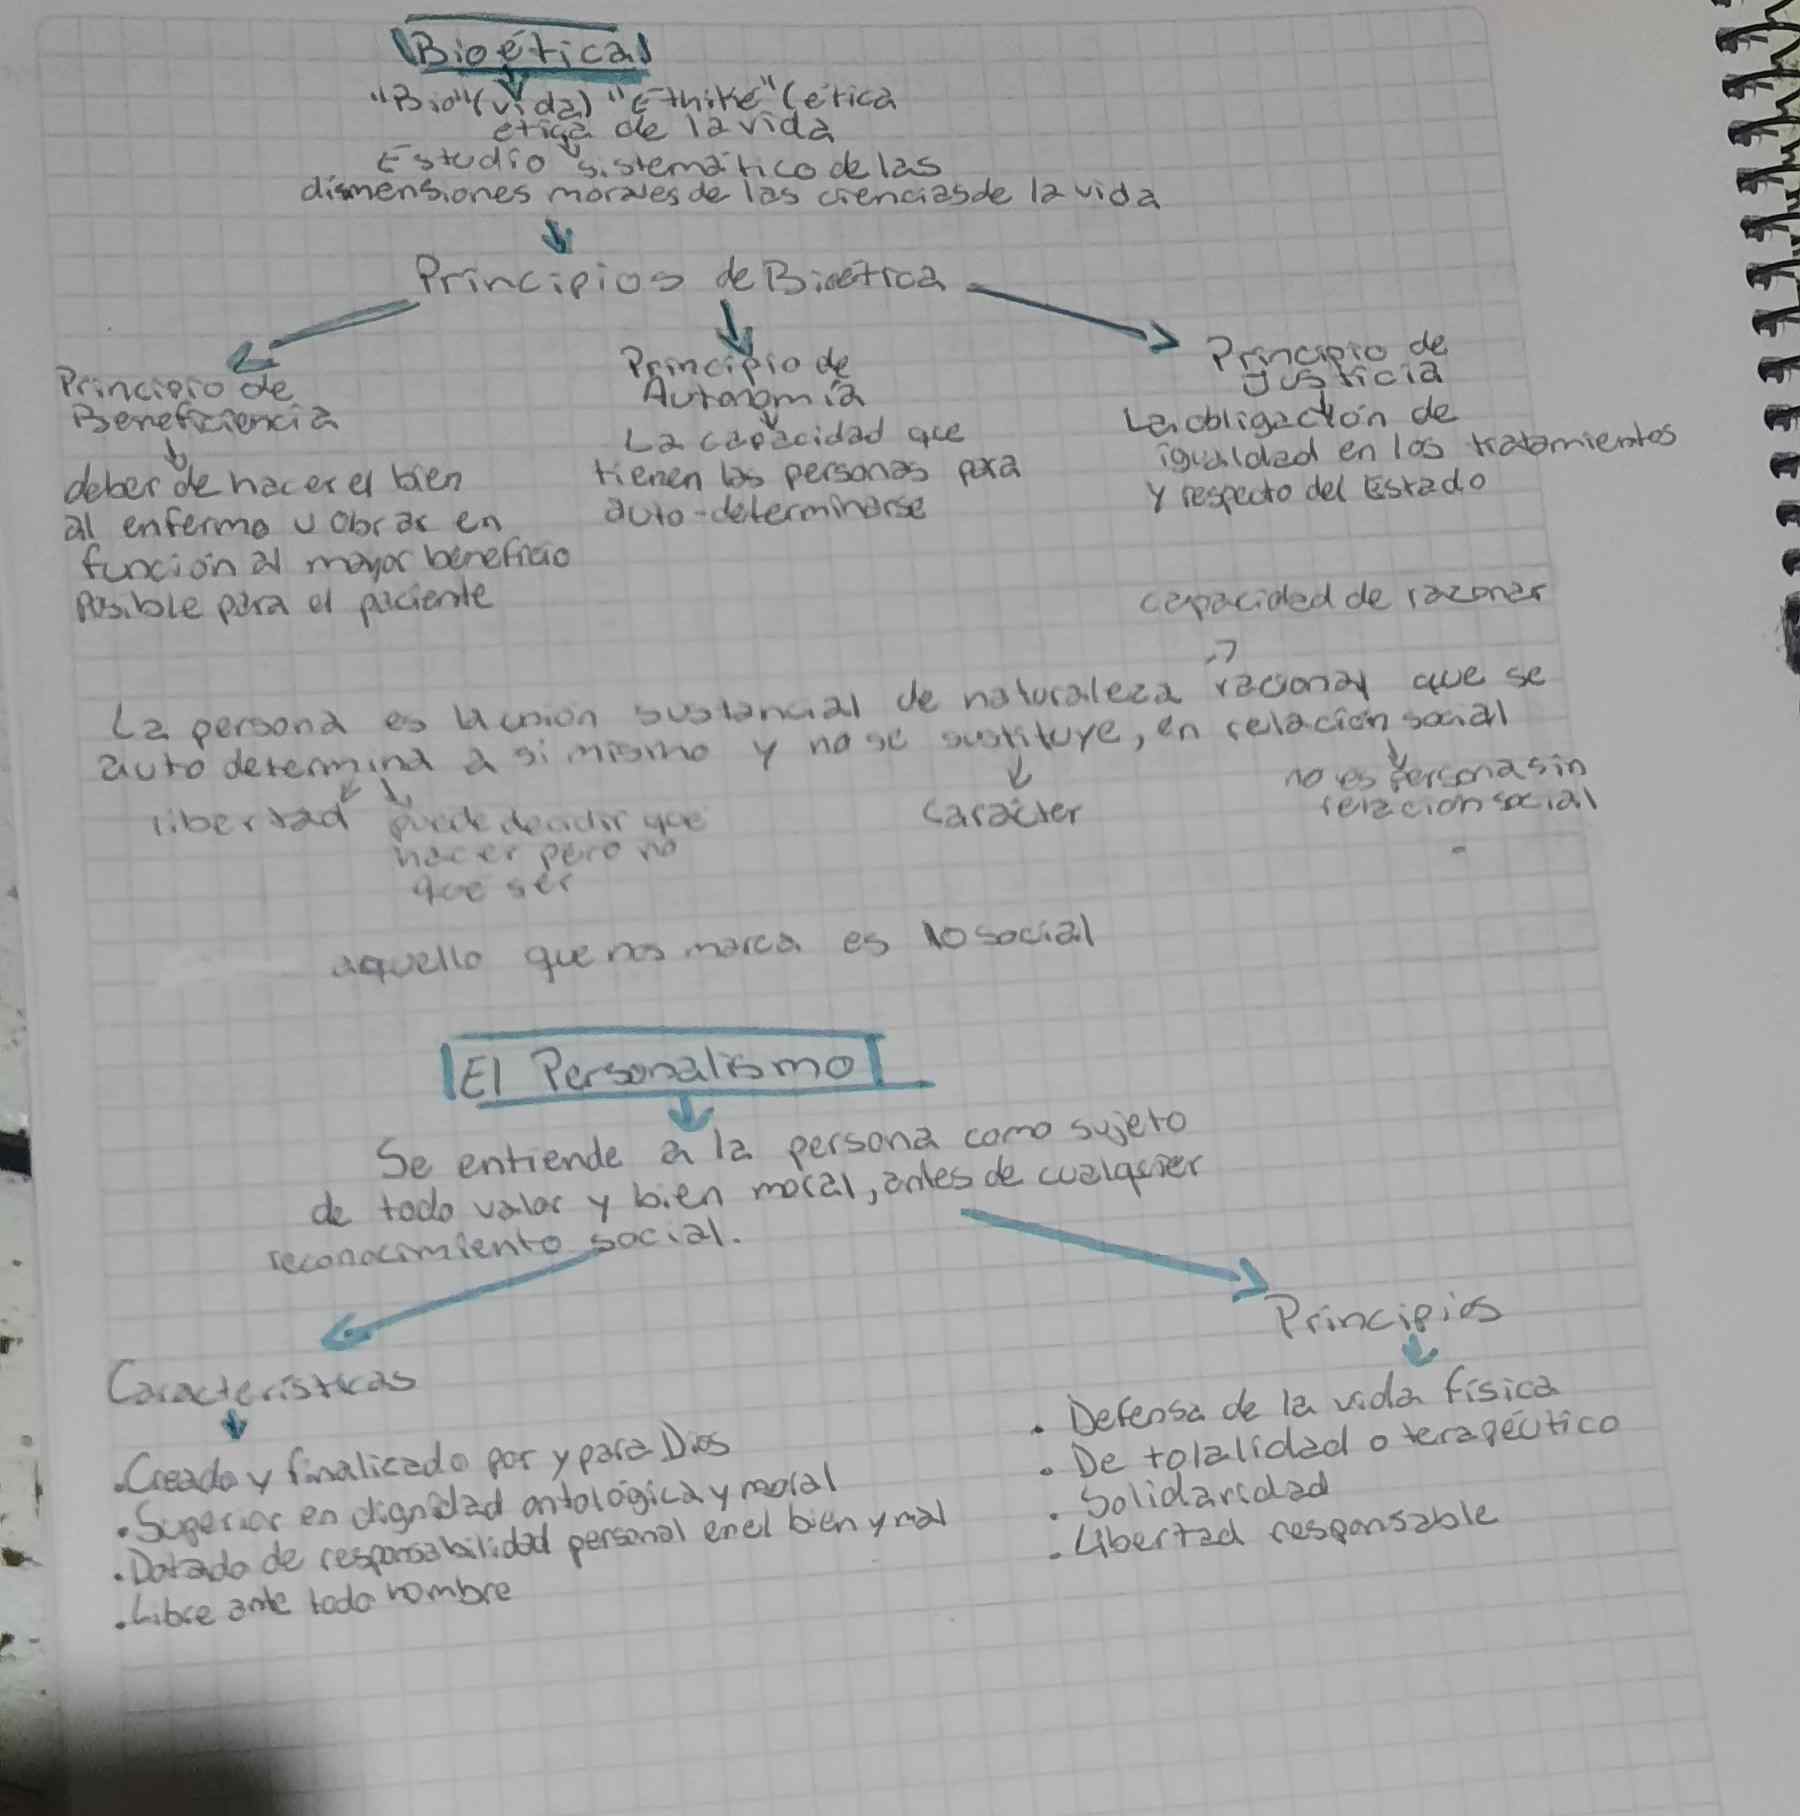 Bioética
"Bio"(vida) "Ethike" (ética
etica de la vida
Estudio sistemático de las
dismensiones morales de las ciencias de la vida
Principios de Bioetica
Principio de
Beneficiencia
deber de hacer el bien
al enfermo u obrar en
función al mayor beneficio
posible para el paciente
Principio de
Autonomía
La capacidad que
tienen las personas para
auto-determinarse
Principio de
Justicia
La obligación de
igualdad en los tratamientos
y respecto del Estado
capacidad de razonar
La persona es la unión sustancial de naturaleza racional que se
auto determina a si mismo y no se sustituye, en relación social
libertad
puede decidir que
hacer pero no
que ser
caracter
no es persona sin
relación social
aquello que nos marca es lo social
El Personalismo
Se entiende a la persona como sujeto
de todo valor y bien moral, antes de cualquier
reconocimiento social.
Características
.Creado y finalicado por y para Dios
.Superior en dignidad ontológica y moral
.Dotado de responsabilidad personal en el bien y mal
.Libre ante todo hombre
Principios
. Defensa de la vida física
. De totalidad o terapéutico
. Solidaridad
. Libertad responsable